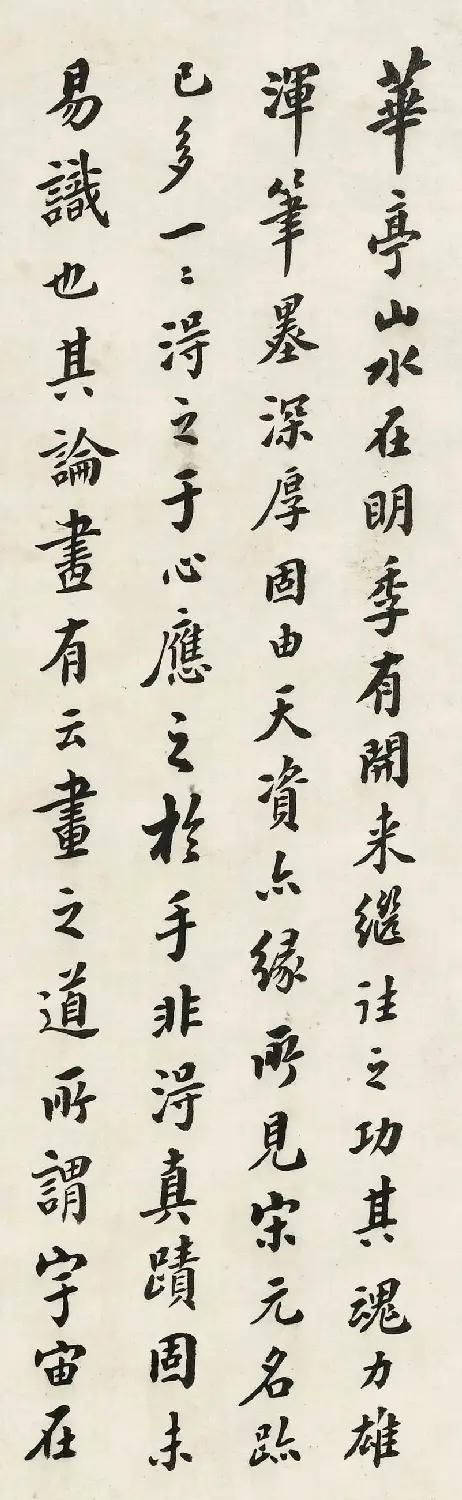 華亭山水在明季有開来繼往之功其魂力雄
渾筆墨深厚固由天資亦緣所見宋元名跡
已多一〻得之于心應之於手非得真蹟固未
易識也其論畫有云畫之道所謂宇宙在